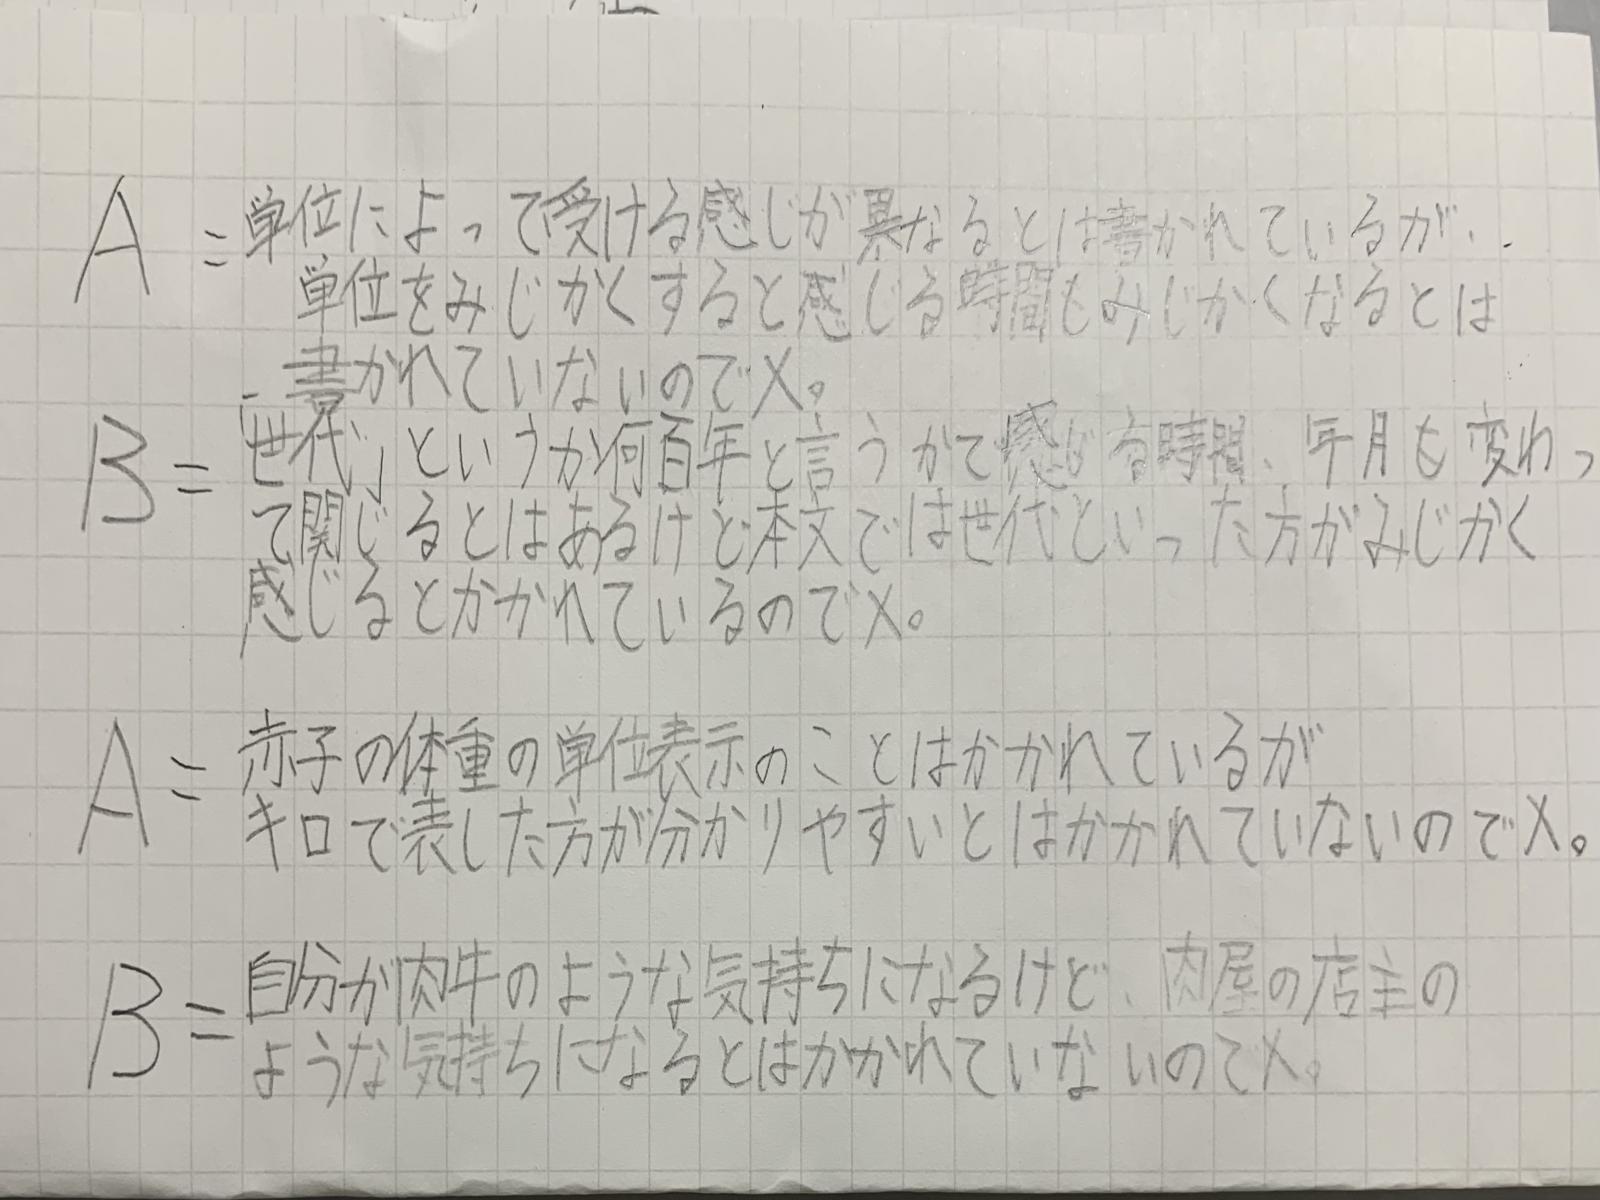 A=単位によって受ける感じが異なるとは書かれているが、
単位をみじかくすると感じる時間もみじかくなるとは
書かれていないので×。
B=「世代」というか何百年と言うかで感じる時間、年月も変わっ
て関じるとはあるけど本文では世代といった方がみじかく
感じるとかかれているので×。
A=赤子の体重の単位表示のことはかかれているが
キロで表した方が分かりやすいとはかかれていないので×。
B=自分が肉牛のような気持ちになるけど、肉屋の店主の
ような気持ちになるとはかかれていないので×。